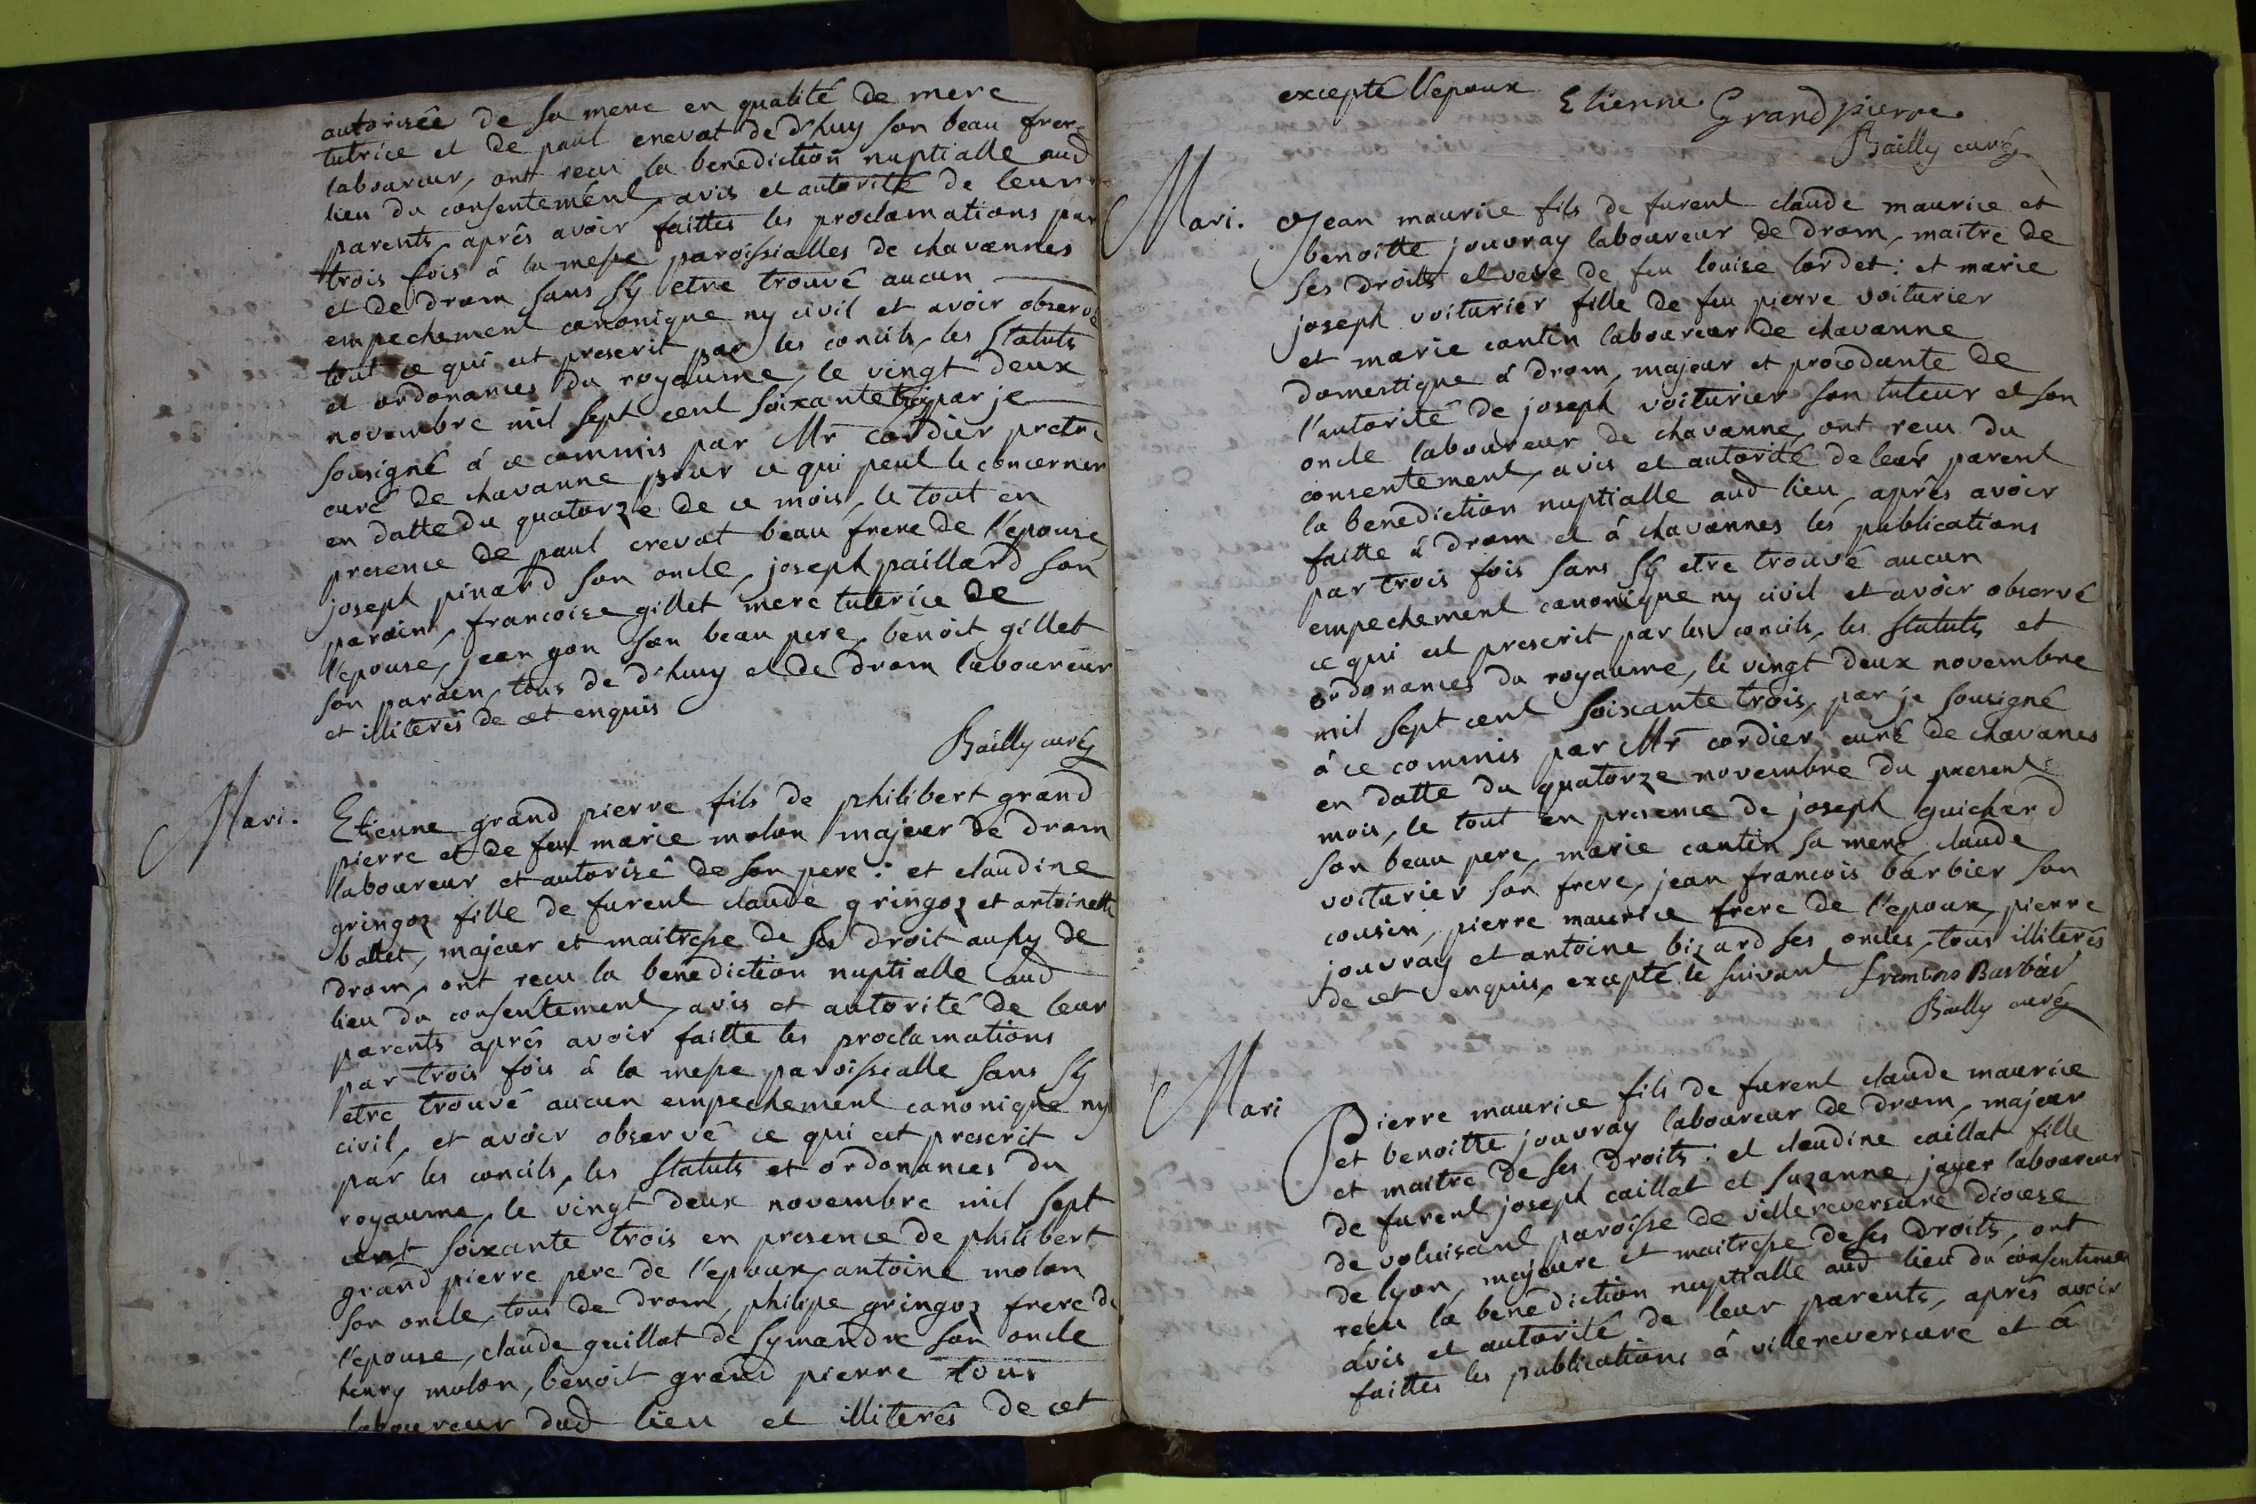 autorisée de sa mere en qualité de mere
tutrice et de paul crevat de d'huy son beau frere
laboureur, ont recu la benediction nuptialle aud
lieu du consentement, avis et autorité de leur
parents aprês avoir faittes les proclamations par
trois fois â la messe paroissialles de chavannes
et de drom sans sy etre trouvé aucun
empechement canonique ny civil et avoir observé
tout ce qui est prescrit par les concils, les statuts
et ordonances du royaume, le vingt deux
novembre mil sept cent soixante trois par je
sousigné â ce commis par Mr cordier pretre
curé de chavanne pour ce qui peut le concerner
en datte du quatorze de ce mois, le tout en
presence de paul crevat beau frere de l'epouse,
joseph pinard son oncle, joseph paillard son
parain, francoise gillet mere tutrice de
l'epouse, jean gon son beau pere, benoit gillet
son parain, tous de d'huy et de drom laboureur
et illiterés de cet enquis
Bailly curé
Mari. Etienne grand pierre fils de philibert grand
pierre et de feu marie molon majeur de drom
laboureur et autorizé de son pere : et claudine
gringoz fille de furent claude gringoz et antoinette
ballet, majeur et maitresse de ses droit aussy de
drom, ont recu la benediction nuptialle aud
lieu du consentement, avis et autorité de leur
parents aprês avoir faitte les proclamations
par trois fois â la messe paroissialle sans sy
etre trouvé aucun empechement canonique ny
civil, et avoir observé ce qui est prescrit
par les concils, les statuts et ordonances du
royaume, le vingt deux novembre mil sept
cent soixante trois en presence de philibert
grand pierre pere de l'epoux, antoine molon
son oncle, tous de drom, philipe gringoz frere de
l'epouse, claude guillat de symandre son oncle
henry molon, benoit grand pierre tous
laboureur dud lieu et illiterés de cet
excepté l'epoux Etienne Grandpierre
Bailly curé
Mari. Jean maurice fils de furent claude maurice et
benoitte jouvray laboureur de drom, maitre de
ses droits et veve de feu louise cordet : et marie
joseph voiturier fille de feu pierre voiturier
et marie cantin laboureur de chavanne
domestique â drom, majeur et procedante de
l'autorité de joseph voiturier son tuteur et son
oncle laboureur de chavanne, ont recu du
consentement, avis et autorité de leur parent
la benediction nuptialle aud lieu, aprês avoir
faitte â drom et â chavannes les publications
par trois fois sans sy etre trouvé aucun
empechement canonique ny civil et avoir observé
ce qui est prescrit par les concils, les statuts et
ordonances du royaume, le vingt deux novembre
mil sept cent soixante trois, par je sousigné
â ce commis par Mr cordier curé de chavanes
en datte du quatorze novembre du present
mois, le tout en presence de joseph guichard
son beau pere, marie cantin sa mere, claude
voiturier son frere, jean francois barbier son
cousin, pierre maurice frere de l'epoux, pierre
jouvray et antoine bizard ses oncles, tous illiterés
de cet enquis, excepté le suivant
Bailly curé
Mari Pierre maurice fils de furent claude maurice
et benoitte jouvray laboureur de drom, majeur
et maitre de ses droits : et claudine caillat fille
de furent joseph caillat et suzanne jayer laboureur
de voluisant paroisse de villereversure diocese
de lyon, majeure et maitresse de ses droits, ont
recu la benediction nuptialle aud lieu du consentement
avis et autorité de leur parents, aprês avoir
faittes les publications â villereversure et â